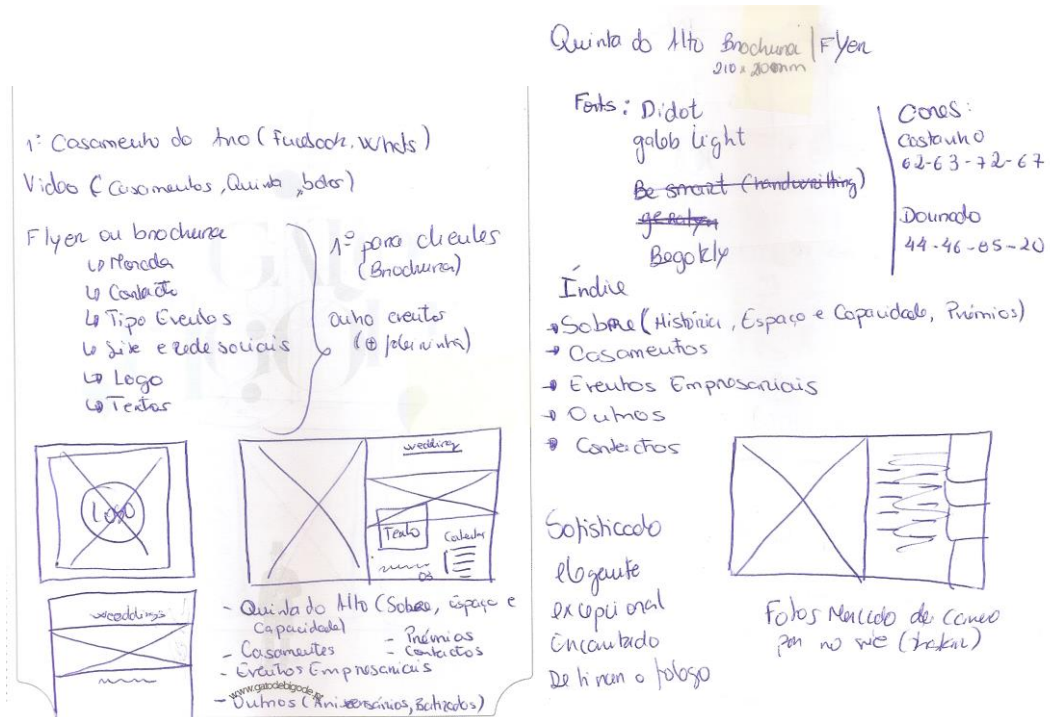 1º Casamento do Ano (Facebook, Whats)
Video (Casamentos, Quinta, bolos)
Flyer ou brochura
↳ Morada
↳ Contacto
↳ Tipo Eventos
↳ Site e rede sociais
↳ Logo
↳ Textos
1º para clientes
(Brochura)
outro eventos
LOGO
wedding
Texto
weddings
- Quinta do Alto (Sobre, Espaço e
Capacidade)
- Prémios
- Casamentos
- Contactos
- Eventos Empresariais
- Outros (Aniversários, Batizados)
www.gatodebigode.pt
Quinta do Alto Brochura | Flyer
210 x 200mm
Fonts: Didot
galob light
Be smart (handwriting)
Begokly
Cores:
Castanho
62-63-72-67
Dourado
44-46-85-20
Índice
→ Sobre (História, Espaço e Capacidade, Prémios)
→ Casamentos
→ Eventos Empresariais
→ Outros
→ Contactos
Sofisticado
elegante
excepcional
Encantado
Fotos
no site